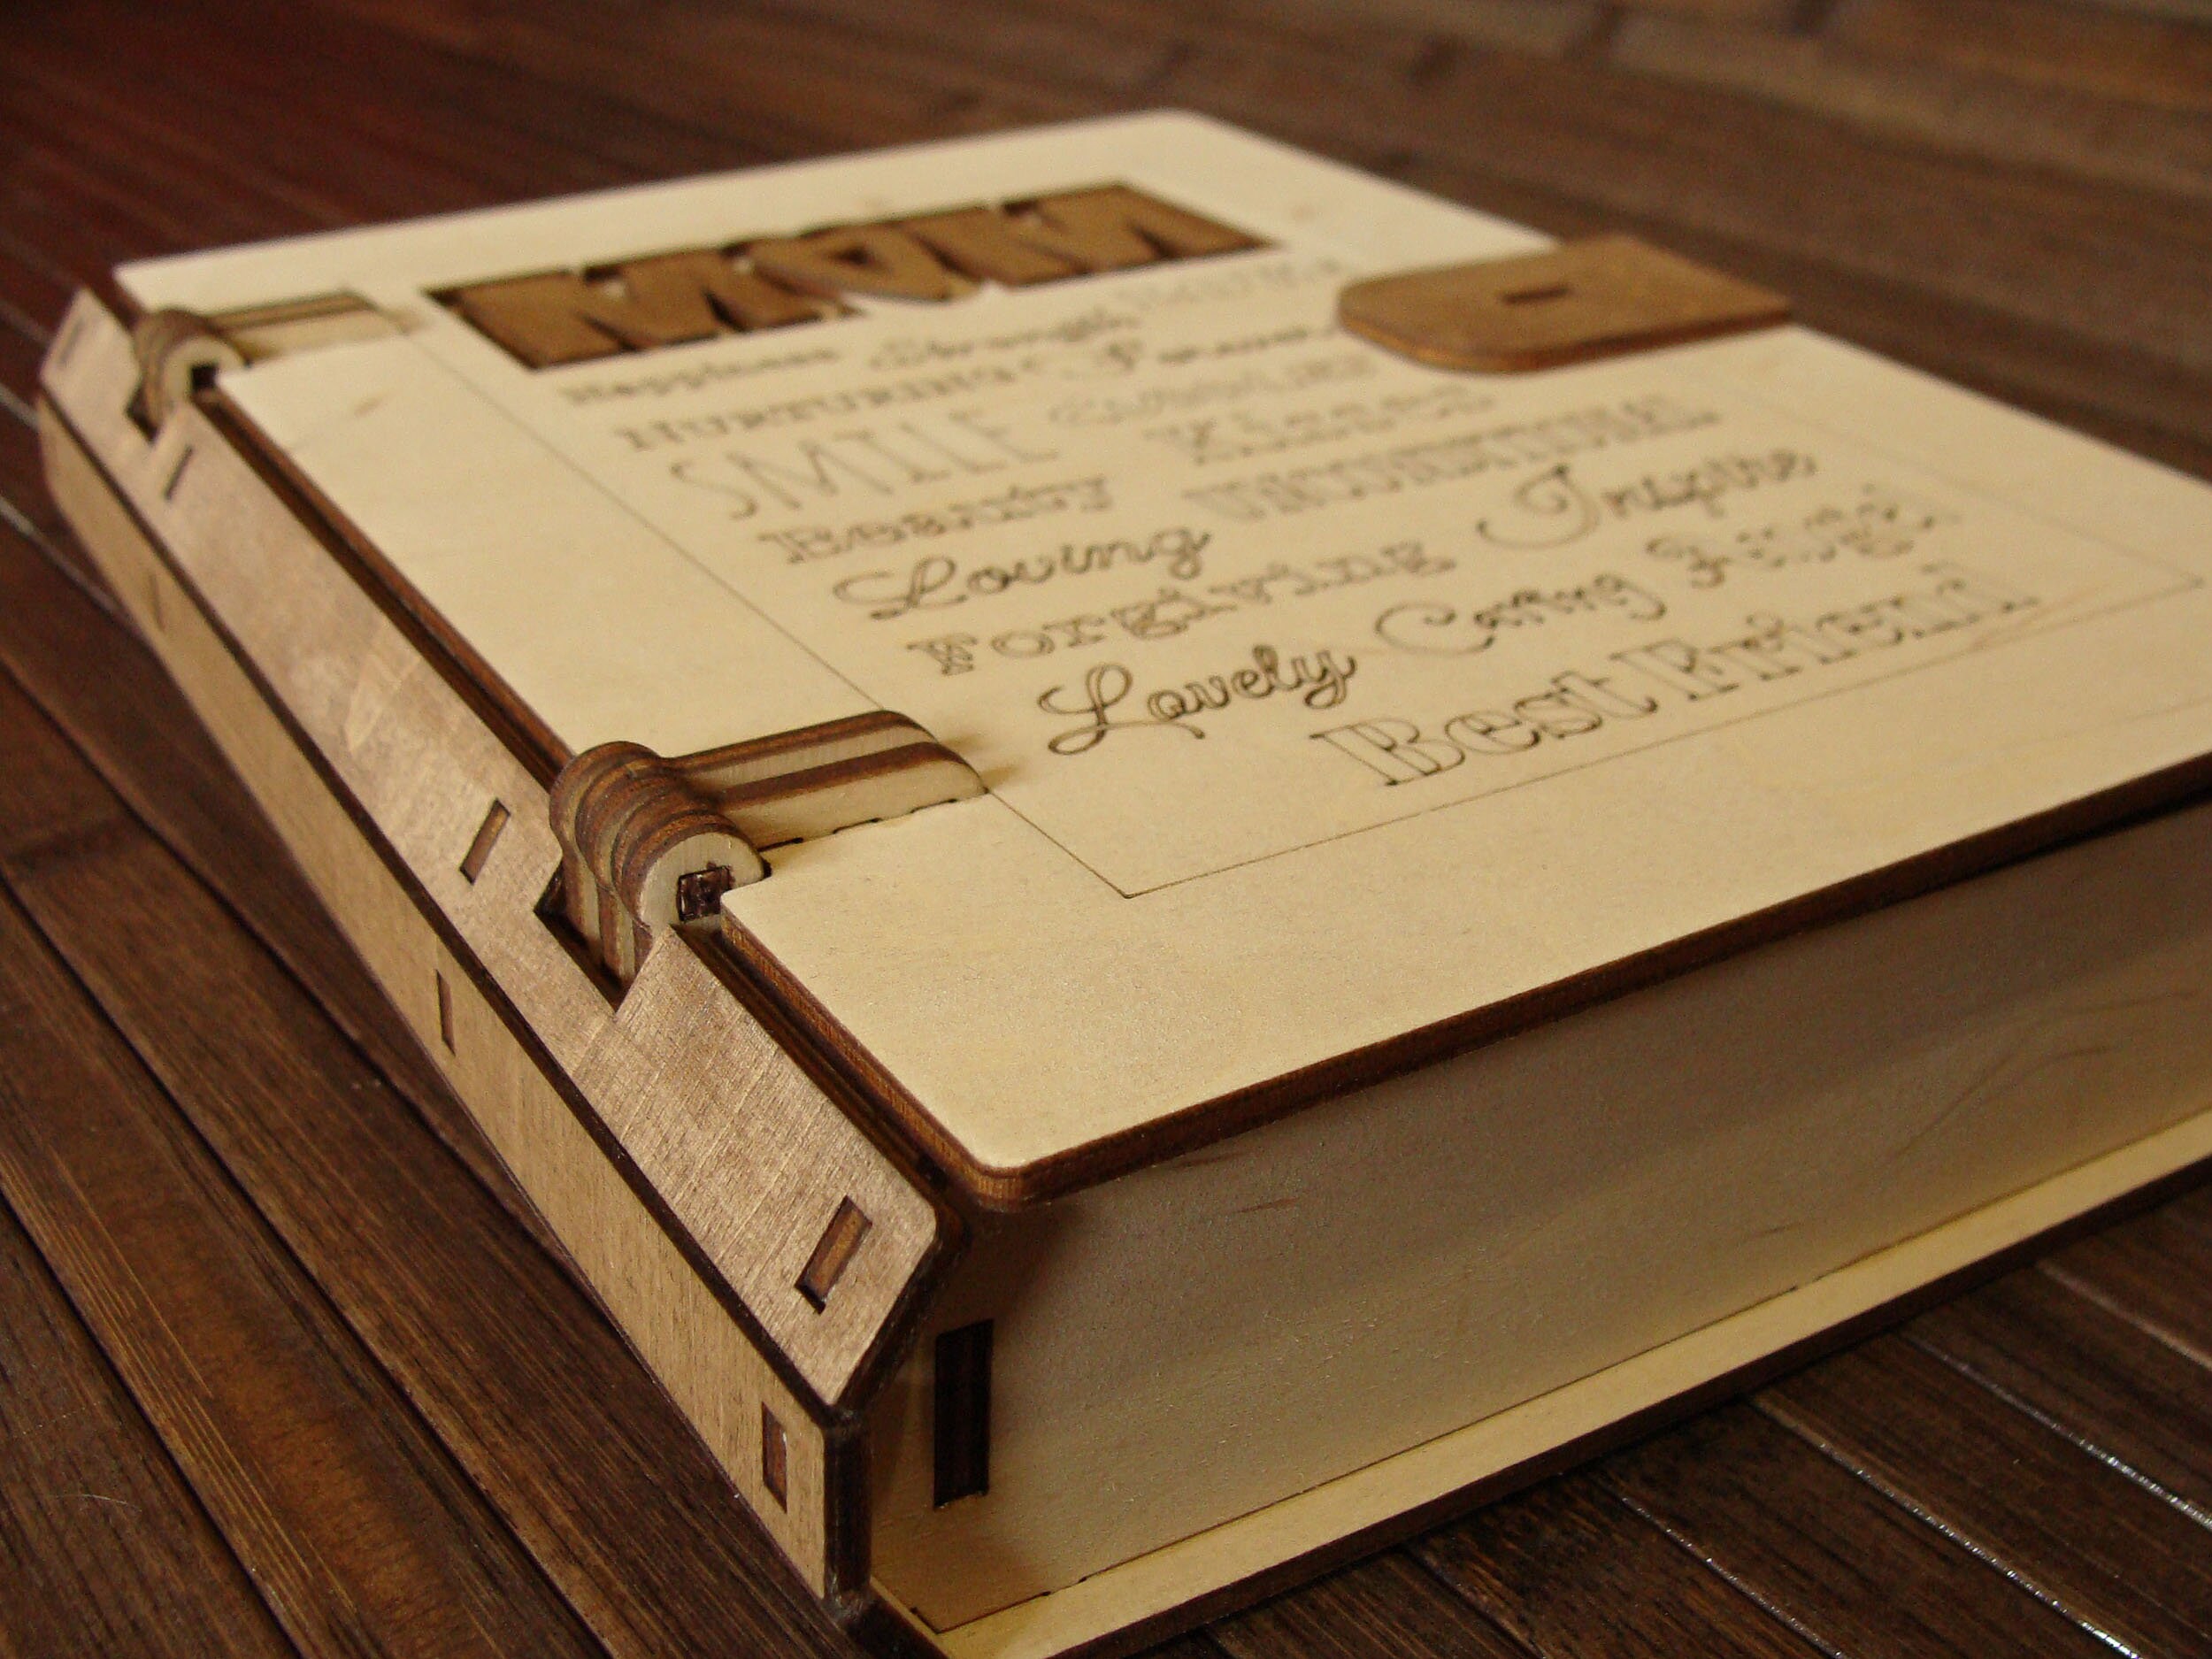 MOM
Happiness Strength
NURTURING
SMILE
Beauty Kisses
Loving UNCONDITIONAL
Forgiving Inspire
Lovely Caring
Best Friend